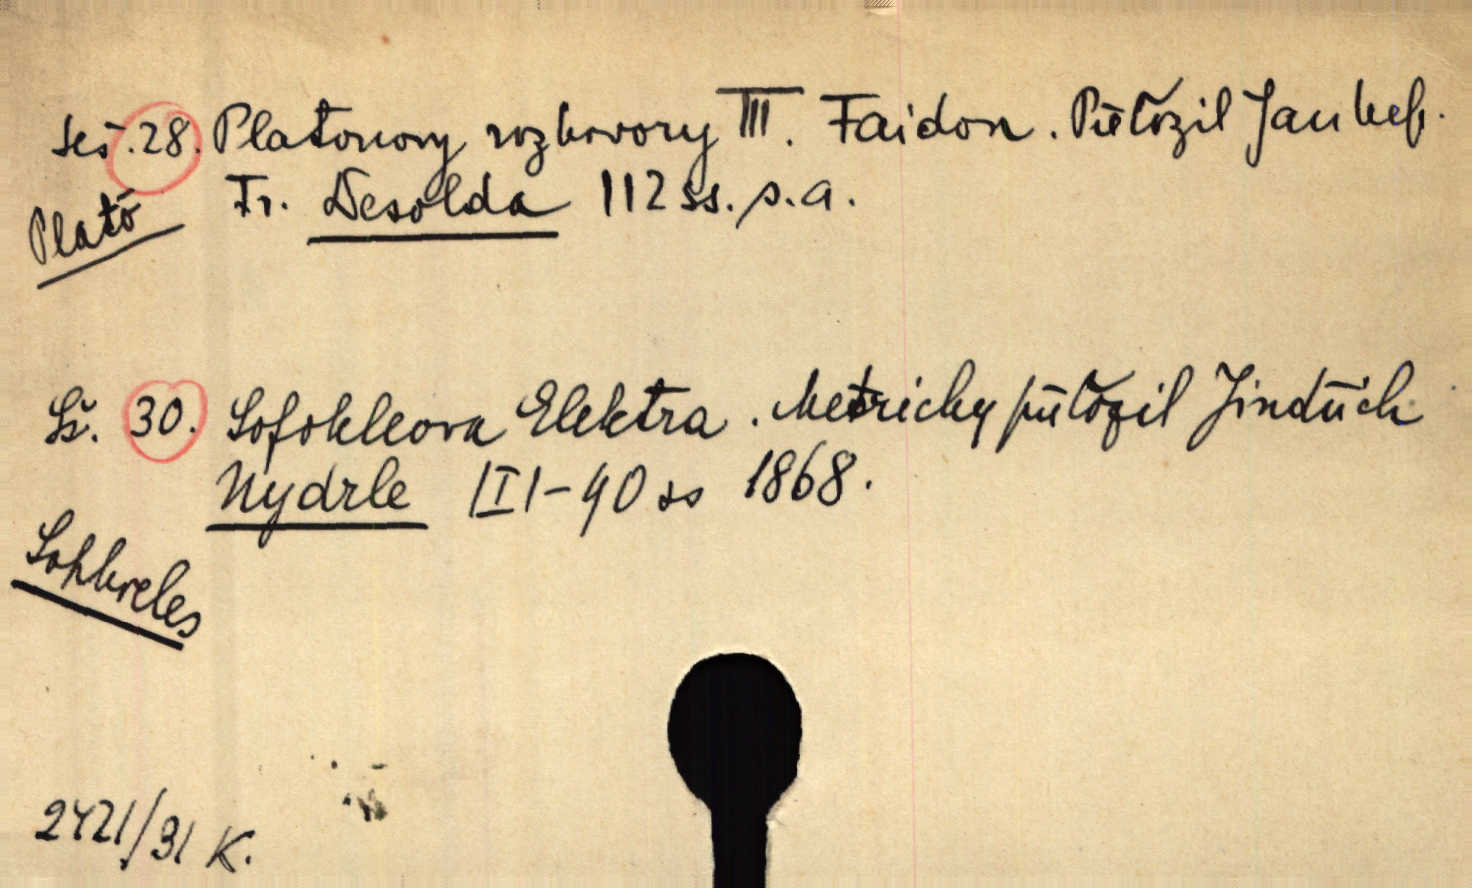 Seš. 28. Platonovy rozhovory III. Faidon. Přeložil Jan Nep.
Fr. Desolda 112 ss. s.a.
Plato
Sš. 30. Sofokleova Elektra. Metricky přeložil Jindřich
Nydrle III-40 ss 1868.
Sophocles
2421/31 K.